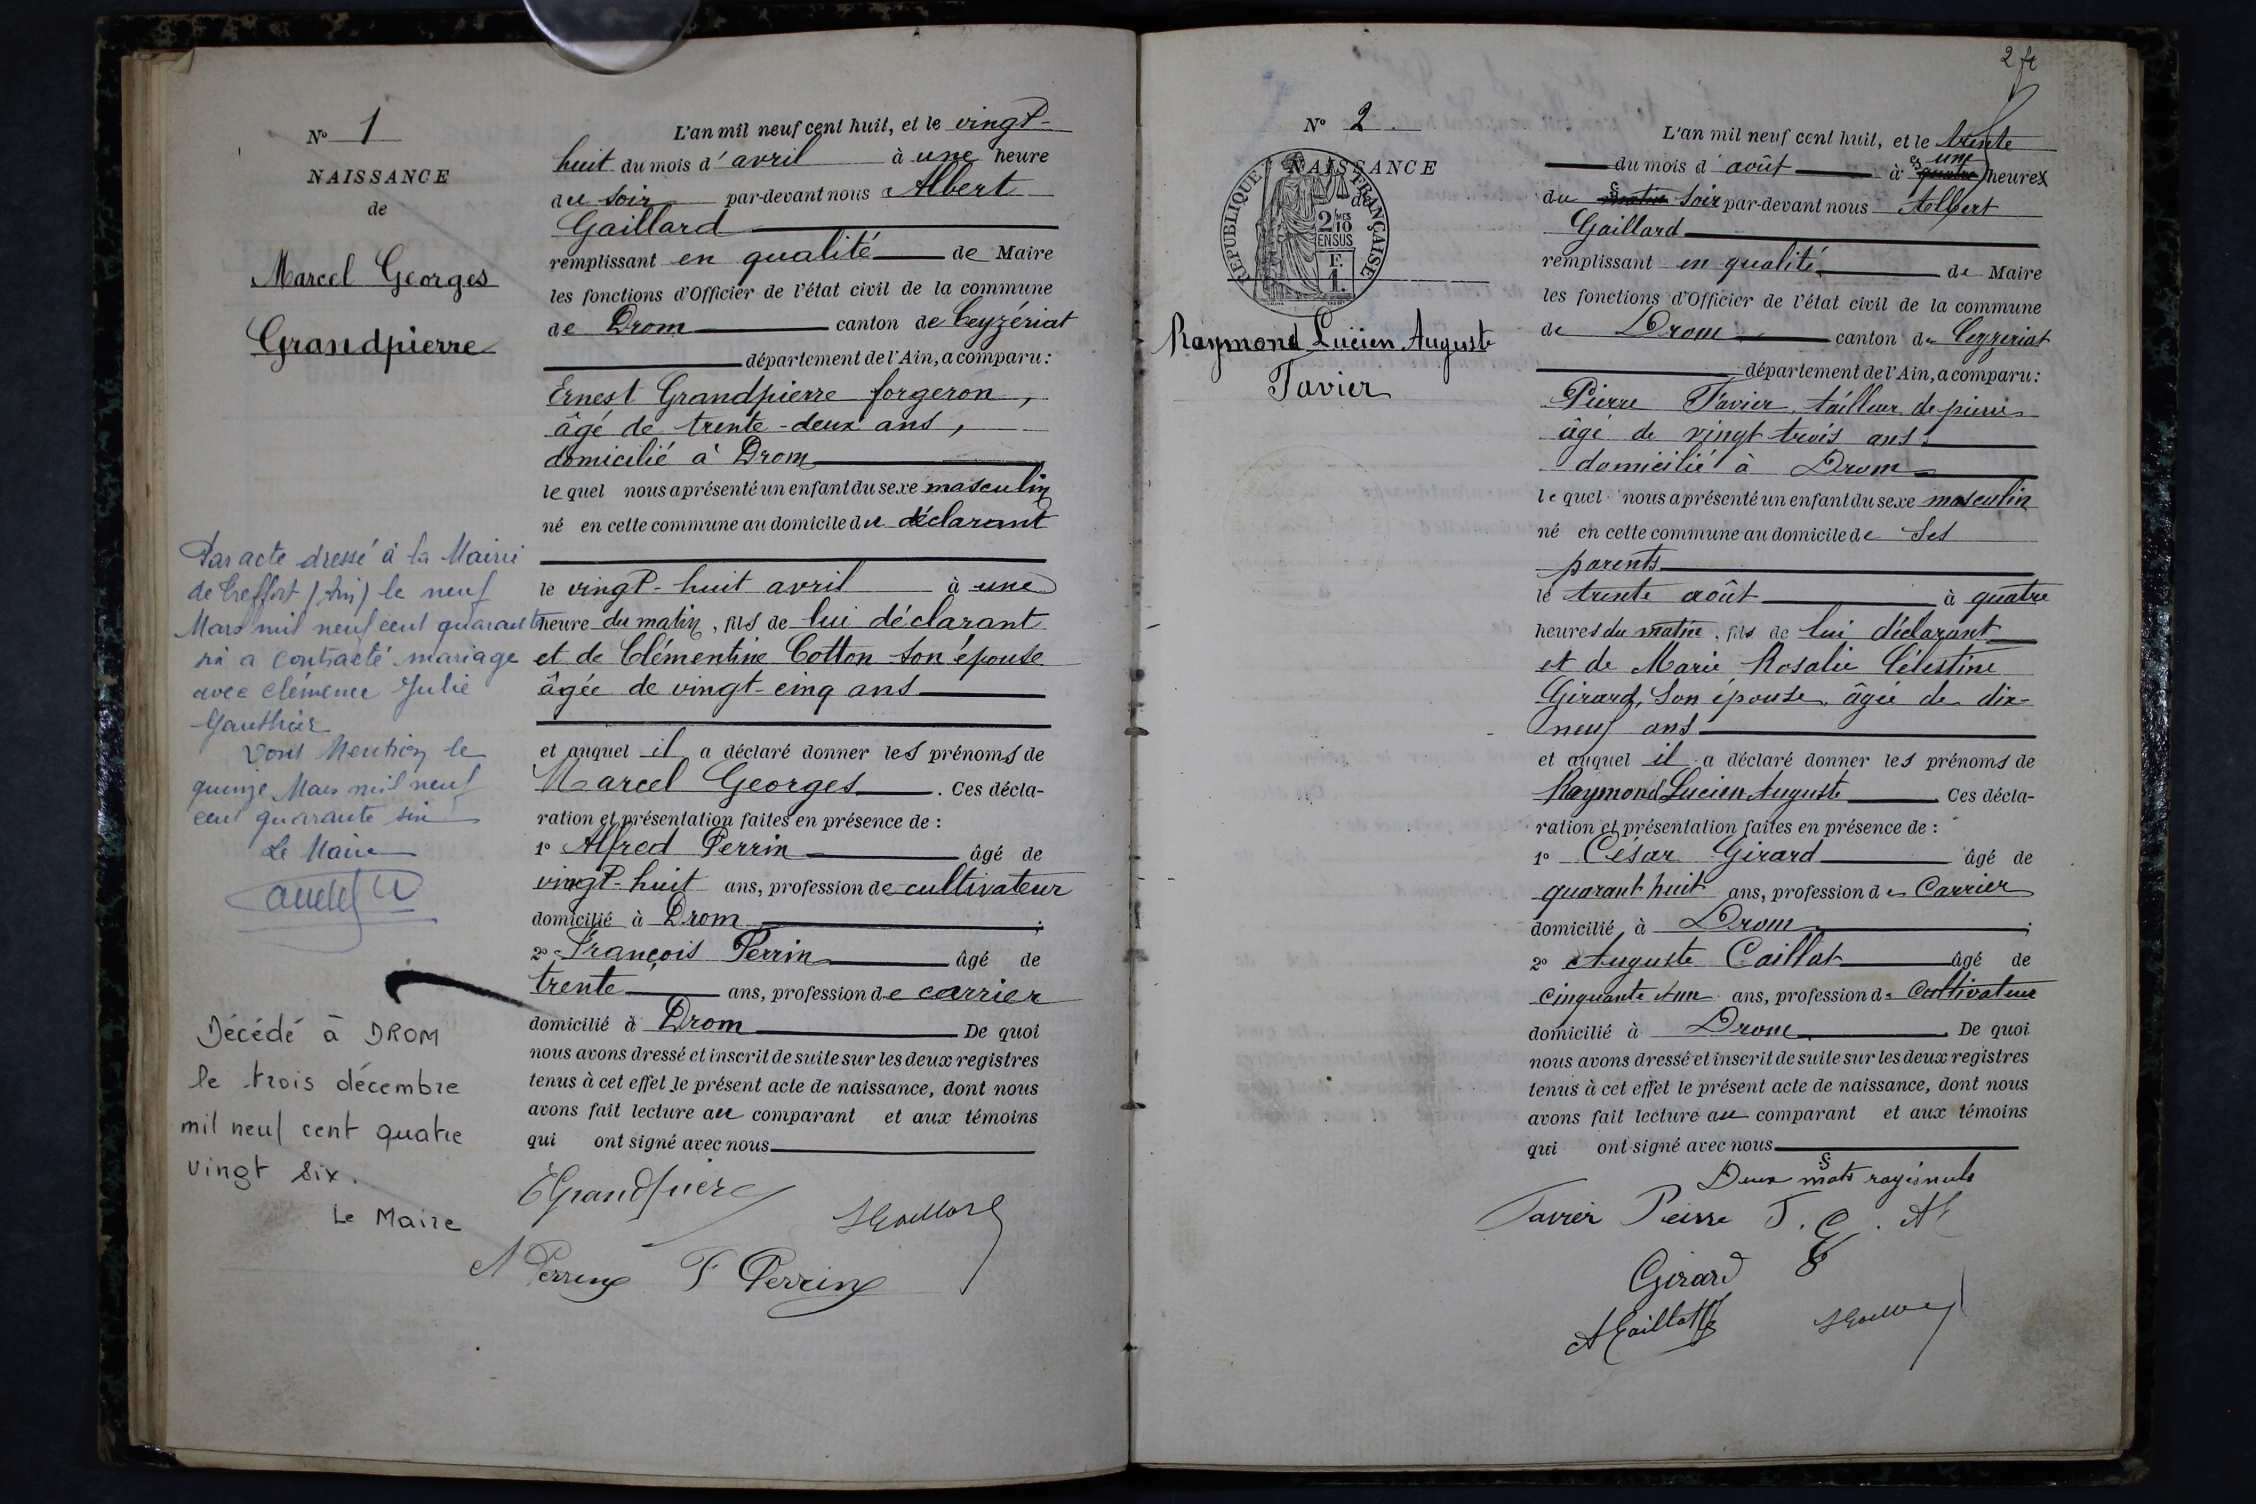 N° 1
NAISSANCE
de
Marcel Georges
Grandpierre
Par acte dressé à la Mairie
de Treffort (Ain) le neuf
Mars mil neuf cent quarante
six a contracté mariage
avec Clémence Julie
Gauthier
Dont Mention le
quinze Mars mil neuf
cent quarante six
Le Maire
Décédé à DROM
le trois décembre
mil neuf cent quatre
vingt six.
Le Maire
L'an mil neuf cent huit, et le vingt-
huit du mois d'avril à une heure
du soir par-devant nous Albert
Gaillard
remplissant en qualité de Maire
les fonctions d'Officier de l'état civil de la commune
de Drom canton de Ceyzériat
département de l'Ain, a comparu :
Ernest Grandpierre forgeron,
âgé de trente-deux ans,
domicilié à Drom
lequel nous a présenté un enfant du sexe masculin
né en cette commune au domicile du déclarant
le vingt-huit avril à une
heure du matin, fils de lui déclarant
et de Clémentine Cotton son épouse
âgée de vingt-cinq ans
et auquel il a déclaré donner les prénoms de
Marcel Georges. Ces décla-
ration et présentation faites en présence de :
1° Alfred Perrin âgé de
vingt-huit ans, profession de cultivateur
domicilié à Drom ;
2° François Perrin âgé de
trente ans, profession de carrier
domicilié à Drom De quoi
nous avons dressé et inscrit de suite sur les deux registres
tenus à cet effet le présent acte de naissance, dont nous
avons fait lecture au comparant et aux témoins
qui ont signé avec nous
EGrandpierre
AGaillard
A Perrin F Perrin
2 ft
N° 2
NAISSANCE
de
REPUBLIQUE FRANÇAISE
2 MES
10
EN SUS
F.
1.
Raymond Lucien Auguste
Tavier
L'an mil neuf cent huit, et le trente
du mois d'août à quatre une heure
du matin soir par-devant nous Albert
Gaillard
remplissant en qualité de Maire
les fonctions d'Officier de l'état civil de la commune
de Drom canton de Ceyzeriat
département de l'Ain, a comparu :
Pierre Tavier, tailleur de pierres
âgé de vingt trois ans
domicilié à Drom
lequel nous a présenté un enfant du sexe masculin
né en cette commune au domicile de ses
parents
le trente août à quatre
heures du matin, fils de lui déclarant
et de Marie Rosalie Célestine
Girard, son épouse, âgée de dix-
neuf ans
et auquel il a déclaré donner les prénoms de
Raymond Lucien Auguste Ces décla-
ration et présentation faites en présence de :
1° César Girard âgé de
quarant huit ans, profession de Carrier
domicilié à Drom ;
2° Auguste Caillat âgé de
cinquante et un ans, profession de Cultivateur
domicilié à Drom. De quoi
nous avons dressé et inscrit de suite sur les deux registres
tenus à cet effet le présent acte de naissance, dont nous
avons fait lecture au comparant et aux témoins
qui ont signé avec nous
Deux mots rayés nuls
Tavier Pierre T. G. AC
Girard
ACaillat
AGaillard